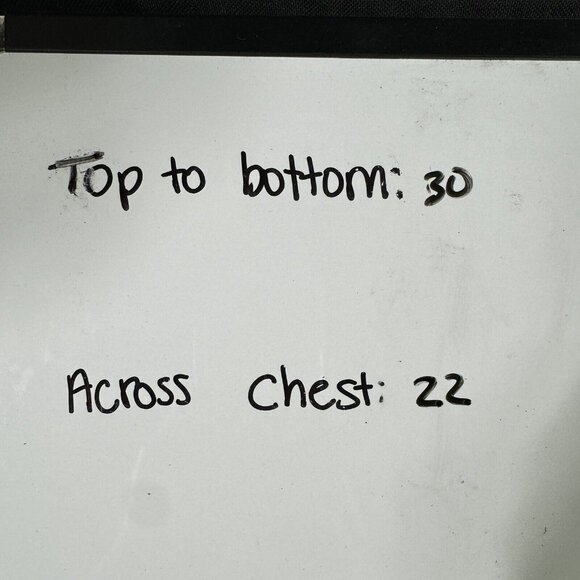 Top to bottom: 30
Across Chest: 22